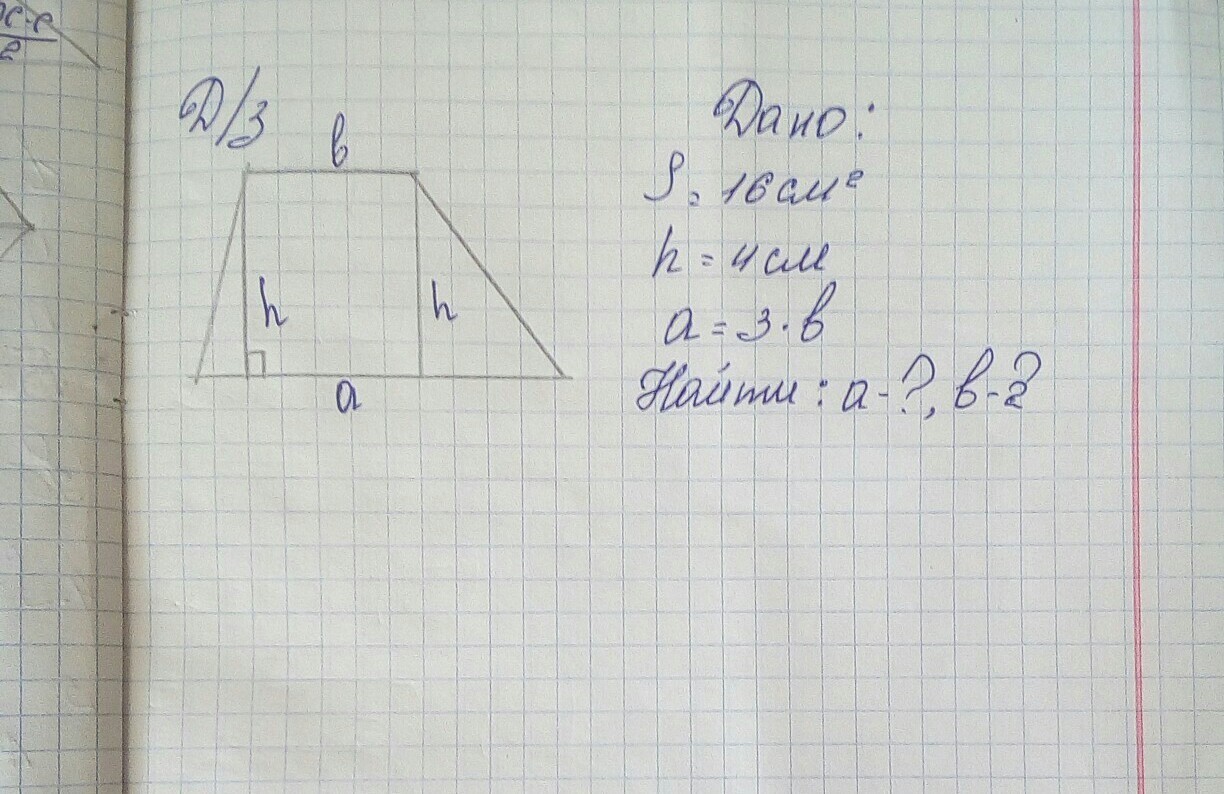 Д/З
в
h
h
a
Дано:
S = 16 см²
h = 4 см
a = 3 · в
Найти: a - ?, в - ?